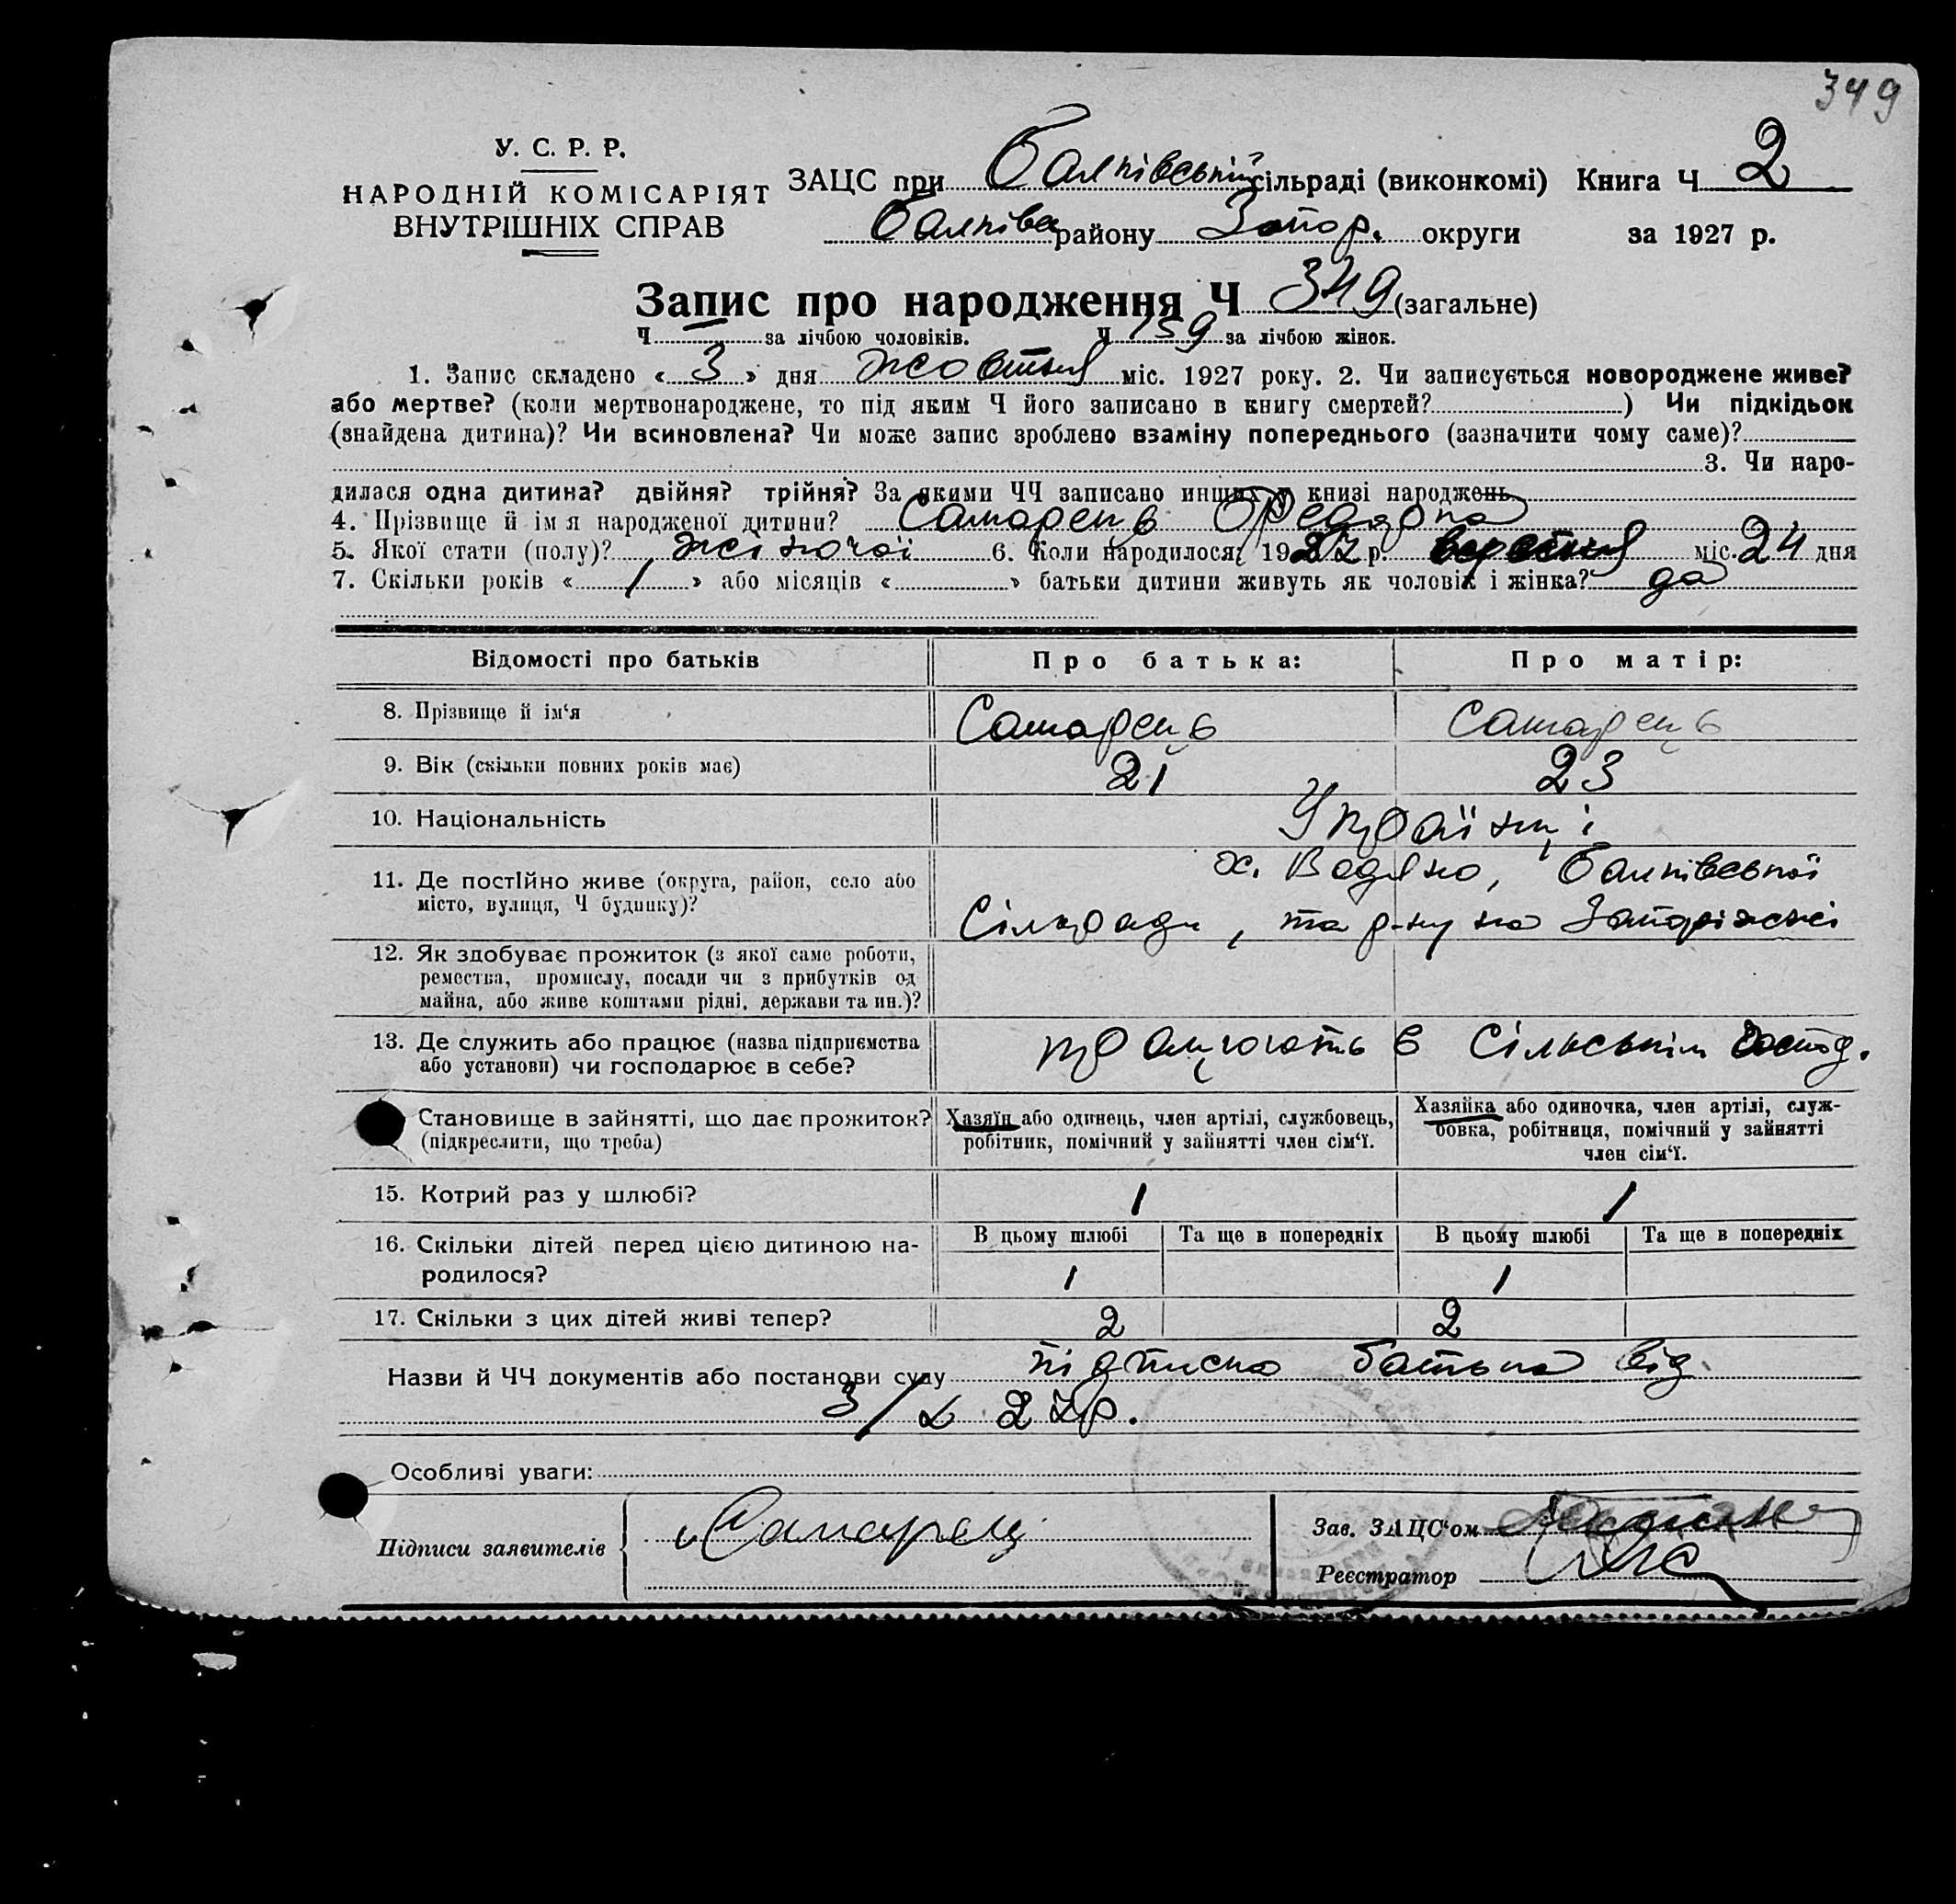 349
У. С. Р. Р.
НАРОДНІЙ КОМІСАРІЯТ
ВНУТРІШНІХ СПРАВ
ЗАЦС при Балківській сільраді (виконкомі) Книга Ч 2
Балківськ району Запор. округи за 1927 р.
Запис про народження Ч 349 (загальне)
Ч — за лічбою чоловіків. Ч 159 за лічбою жінок.
1. Запис складено « 3 » дня жовтня міс. 1927 року. 2. Чи записується новороджене живе?
або мертве? (коли мертвонароджене, то під яким Ч його записано в книгу смертей? ) Чи підкідьок
(знайдена дитина)? Чи всиновлена? Чи може запис зроблено взаміну попереднього (зазначити чому саме)?
3. Чи наро-
дилася одна дитина? двійня? трійня? За якими ЧЧ записано инших у книзі народжень
4. Прізвище й ім'я народженої дитини? Самарець
5. Якої стати (полу)? жіночої 6. Коли народилося: 1927 р. вересня міс. 24 дня
7. Скільки років « 1 » або місяців « » батьки дитини живуть як чоловік і жінка? да
Відомості про батьків Про батька: Про матір:
8. Прізвище й ім'я Самарець Самарець
9. Вік (скільки повних років має) 21 23
10. Національність Українці
11. Де постійно живе (округа, район, село або х. Водяно, Балківської
місто, вулиця, Ч будинку)? Сільради, та р-ну на Запоріжжі
12. Як здобуває прожиток (з якої саме роботи,
ремества, промислу, посади чи з прибутків од
майна, або живе коштами рідні, держави та ин.)?
13. Де служить або працює (назва підприємства працюють в Сільськім Господ.
або установи) чи господарює в себе?
Становище в зайнятті, що дає прожиток? Хазяїн або одинець, член артілі, службовець, Хазяйка або одиночка, член артілі, служ-
(підкреслити, що треба) робітник, помічний у зайнятті член сім'ї. бовка, робітниця, помічний у зайнятті
член сім'ї.
15. Котрий раз у шлюбі? 1 1
16. Скільки дітей перед цією дитиною на- В цьому шлюбі Та ще в попередніх В цьому шлюбі Та ще в попередніх
родилося? 1 1
17. Скільки з цих дітей живі тепер? 2 2
Назви й ЧЧ документів або постанови суду підписка батька від
3/X 27р.
Особливі уваги:
Підписи заявителів Самарец Зав. ЗАЦС'ом
Реєстратор